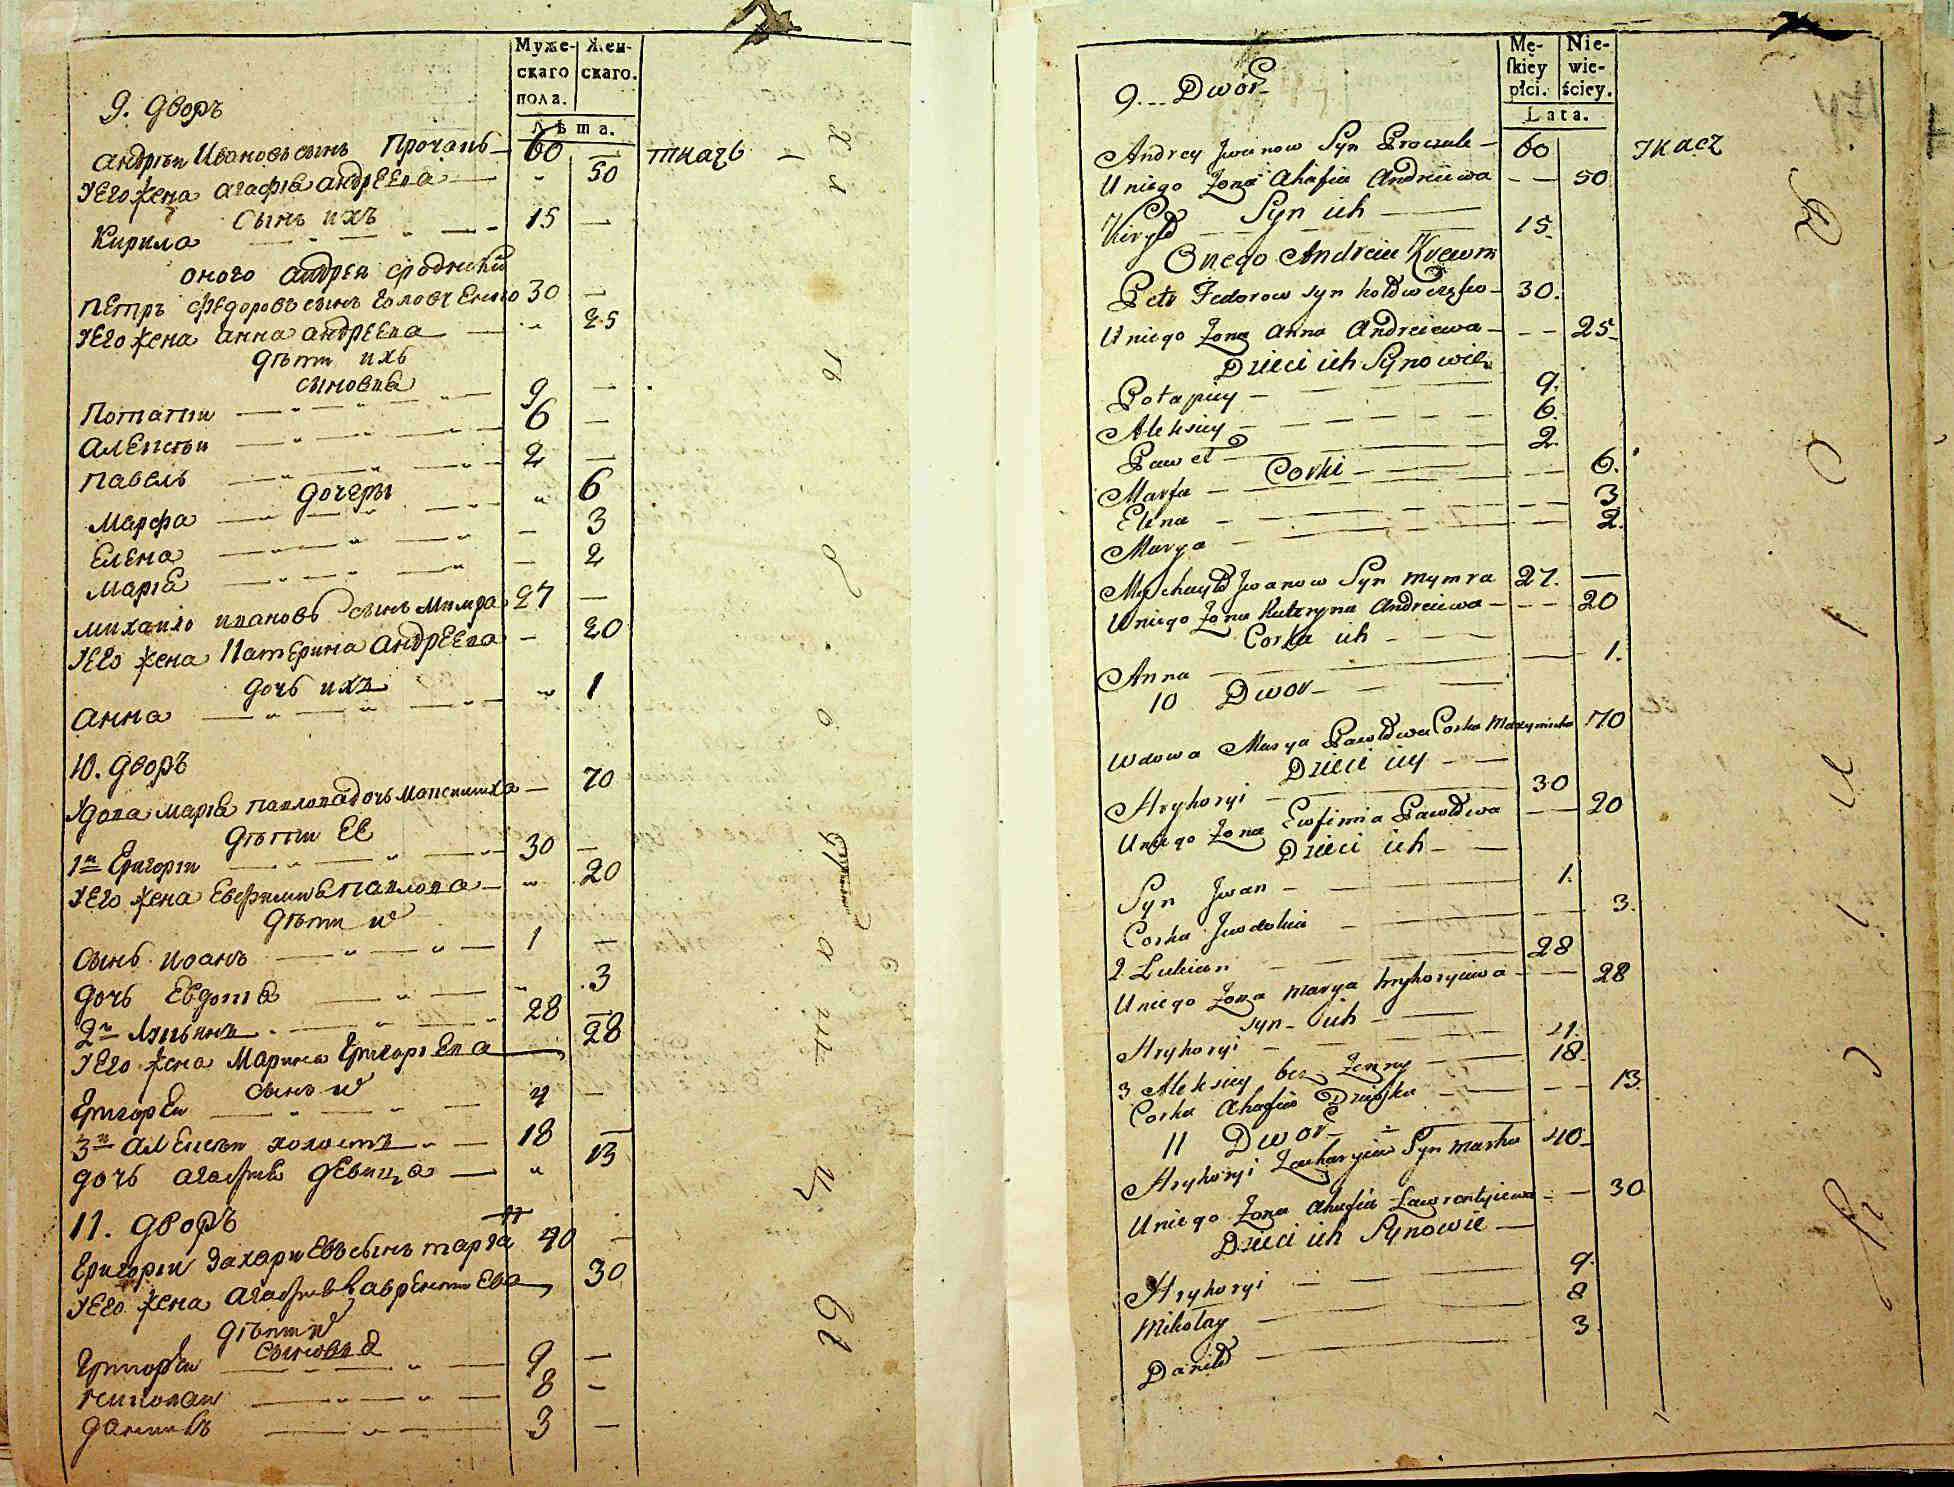 Муже-
скаго
пола.
Жен-
скаго.
Лѣта.
9. дворъ
Андрѣи Ивановъ сынъ Прочапь 60 — ткачь —
Его жена Агафіа Андреева — " 50
Сынъ ихъ
Кирила 15 —
оного Андрея сродники
Петръ Федоровъ сынъ 30 —
Его жена Анна Андреева — " 25
дѣти ихъ
сыновѣа
Потапіи 9 —
Алексѣи 6 —
Павелъ 2 —
дочеры
Марфа " 6
Елена — 3
Маріа — 2
Михаило Ивановъ сынъ Мимра 27 —
Его жена Катерина Андреева — 20
дочь ихъ
Анна " 1
10. дворъ
Удова Маріа Павлова дочь Максимиха — 70
дѣти Её
1й Григоріи 30 —
Его жена Евфимиа Павлова — " 20
дѣти и
Сынъ Иоанъ 1 —
дочь Евдотіа " 3
2й Лукьянъ 28 —
Его жена Марина Григоріева 28
Сынъ и
Григореи 4 —
3й Алексѣи холостъ 18 —
дочь Агафиа девица — " 13
11. дворъ
Григоріи Захариевъ сынъ 40 —
Его жена Агафиа Лаврентиева 30
дѣти и
Сыновѣа
Григореи 9 —
Николаи 8 —
Данилъ 3 —
Mę-
skiey
płci.
Nie-
wie-
ściey.
Lata.
9. Dwór
Andrey Jwanow Syn 60 Tkacz
U niego Żona Ahafia Andreiewa — — 50
Syn ich
Kirył 15.
Onego Andreia Krewni
Petr Fedorow syn 30.
U niego Żona Anna Andreiewa — — 25
Dzieci ich Synowie
Potapiy 9.
Aleksiey 6.
Paweł 2.
Corki
Marfa 6.
Elena 3
Marya 2.
Michayło Jwanow Syn Mymra 27. —
U niego Żona Kateryna Andreiewa — — 20
Corka ich
Anna 1.
10 Dwor
Wdowa Marya Pawłowa Corka Maxymicha 70
Dzieci iey
Hryhoryi 30
U niego Żona Eufimia Pawłowa — 20
Dzieci ich
Syn Jwan 1.
Corka Jewdokia 3.
2. Lukian 28
U niego Żona Marya Hryhoryiewa — — 28
syn ich
Hryhoryi 4.
3 Aleksiey bez Żenny 18.
Corka Ahafia Dziewka 13
11 Dwor
Hryhoryi Zacharyiew Syn 40
U niego Żona Ahafia Lawrentyiewa — — 30
Dzieci ich Synowie —
Hryhoryi 9.
Mikołay 8
Danił 3